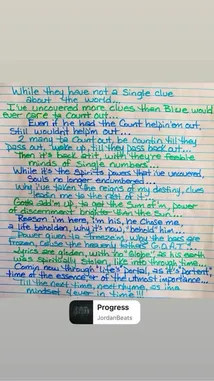 While they have not a Single clue
about the world...
I've uncovered more clues than Blue would
ever care to Count out...
Even if he had the Count helpin'em out,
Still wouldn't helpim out...
2 many to Count out, be countin till they
pass out, wake up, till they pass back out...
Then it's back at it, with they're feeble
minds of Single numbers...
While it's the Spirits powers that I've uncovered,
Souls no longer encumbered...
Why I've taken the reigns of my destiny, clues
leadin me to the rest of it...
Gotta add'em up, to get the Sum of'im, power
of discernment brighter than the Sun...
Reason I'm here, I'm his, he Chose me,
a life beholden, why it's now, "behold" him...
Power given is freezing, why the bars are
frozen, cause the heavenly fathers G.O.A.T...
Lyrics are gladen, with no "slope" as his earth
was spiritually stolen, life into through time...
Comin now through "life's" portal, as it's "portent"
time of the essence, or of the utmost importance...
Till the next time, next rhyme, as im a
mindset 4ever in time!!!
Progress
JordanBeats